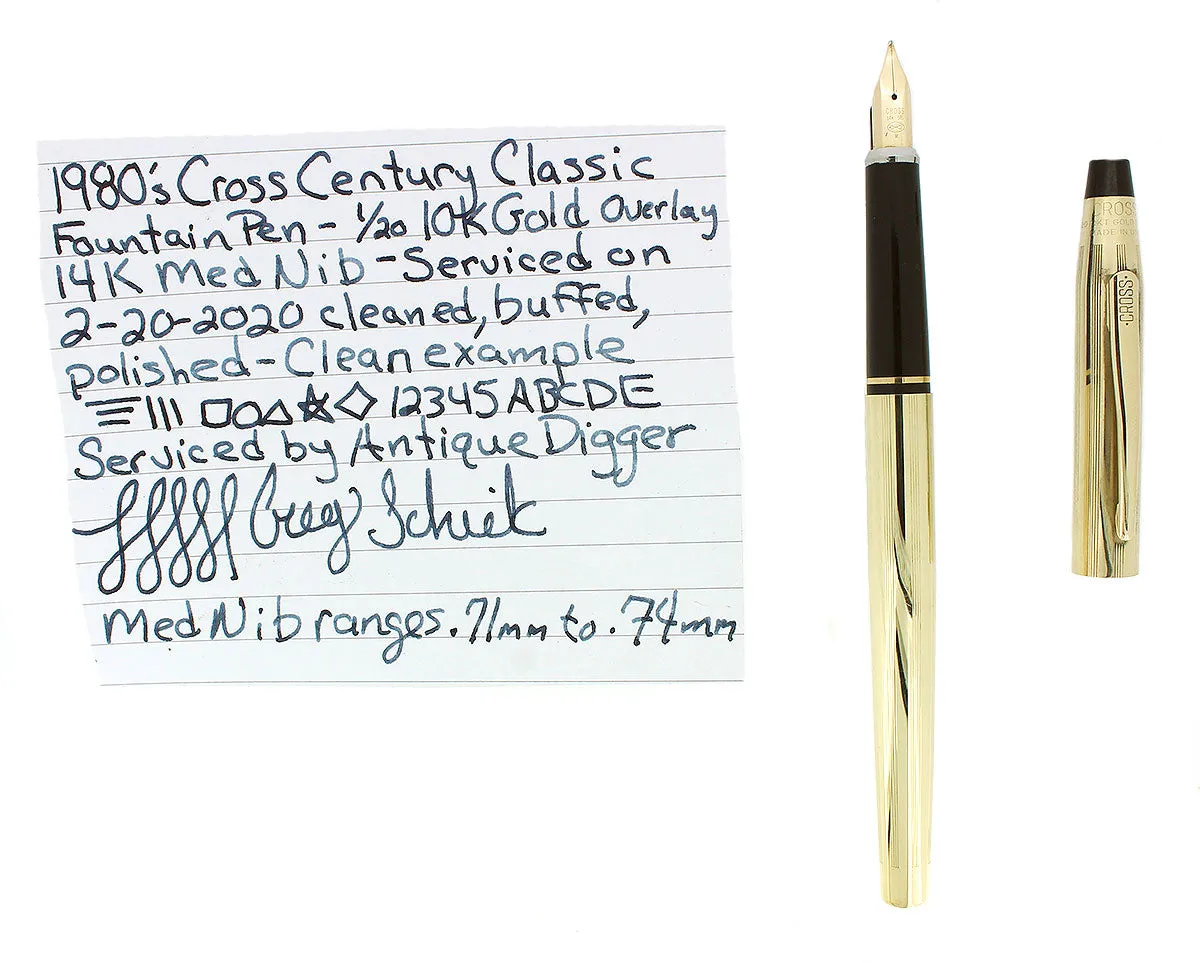 1980's Cross Century Classic
Fountain Pen - 1/20 10K Gold Overlay
14K Med Nib - Serviced on
2-20-2020 cleaned, buffed,
polished - Clean example
12345 ABCDE
Serviced by Antique Digger
Greg Schiek
Med Nib ranges .71mm to .74mm
CROSS
CROSS
MADE IN
·CROSS·